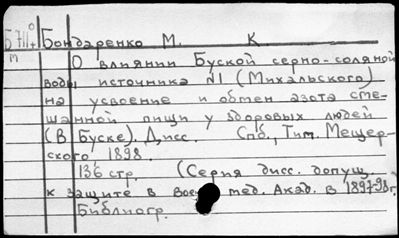 Бондаренко М. К
О влиянии Буской серно-соляной
воды источника №1 (Михальского)
на усвоение и обмен азота сме-
шанной пищи у здоровых людей
(В Буске). Дисс. Спб., Тип. Мещер-
ского, 1898.
136 стр. (Серия дисс. допущ.
к защите в Воен мед. Акад. в 1897-98 г.
Библиогр.